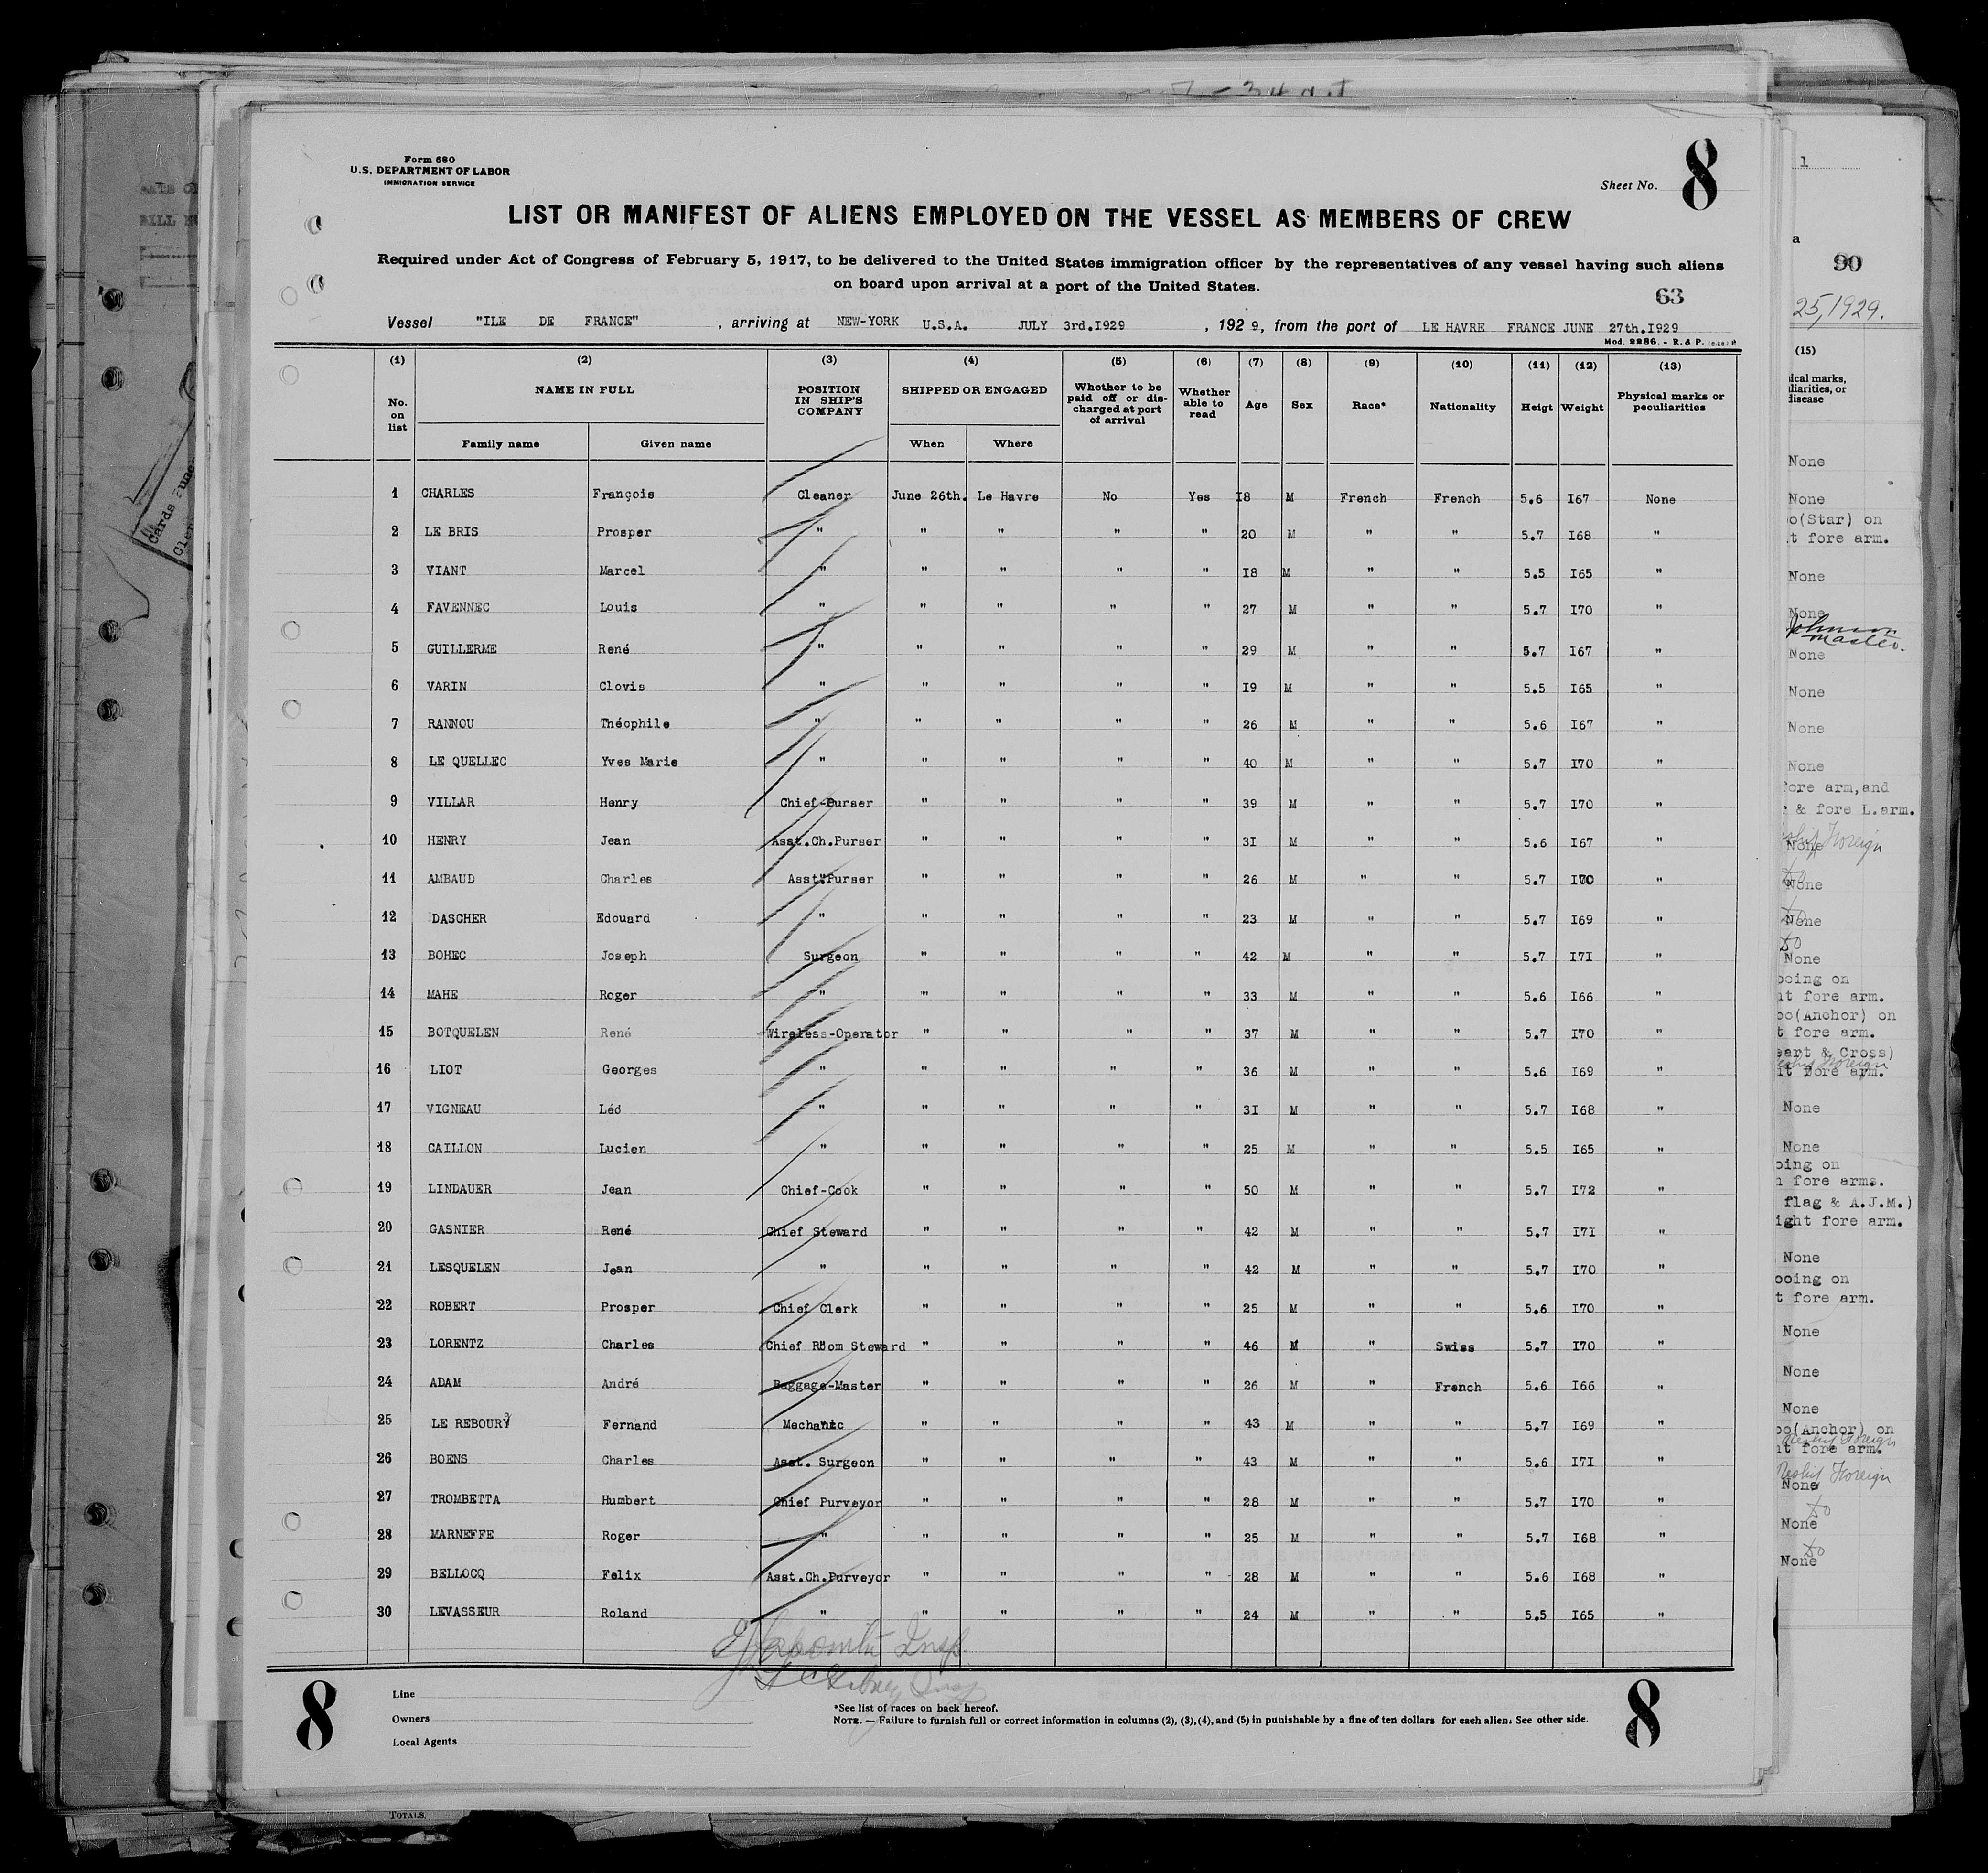 Form 680
U.S. DEPARTMENT OF LABOR
IMMIGRATION SERVICE
Sheet No. 8
LIST OR MANIFEST OF ALIENS EMPLOYED ON THE VESSEL AS MEMBERS OF CREW
Required under Act of Congress of February 5, 1917, to be delivered to the United States immigration officer by the representatives of any vessel having such aliens
on board upon arrival at a port of the United States.
63
Vessel "ILE DE FRANCE" , arriving at NEW-YORK U.S.A. JULY 3rd.I929 , 192 9, from the port of LE HAVRE FRANCE JUNE 27th.I929
Mod. 2286. - R. & P.
(1) (2) (3) (4) (5) (6) (7) (8) (9) (10) (11) (12) (13)
No. on list NAME IN FULL POSITION IN SHIP'S COMPANY SHIPPED OR ENGAGED Whether to be paid off or discharged at port of arrival Whether able to read Age Sex Race* Nationality Heigt Weight Physical marks or peculiarities
Family name Given name When Where
1 CHARLES François Cleaner June 26th. Le Havre No Yes I8 M French French 5.6 I67 None
2 LE BRIS Prosper " " " " " 20 M " " 5.7 I68 "
3 VIANT Marcel " " " " " I8 M " " 5.5 I65 "
4 FAVENNEC Louis " " " " " 27 M " " 5.7 I70 "
5 GUILLERME René " " " " " 29 M " " 5.7 I67 "
6 VARIN Clovis " " " " " I9 M " " 5.5 I65 "
7 RANNOU Théophile " " " " " 26 M " " 5.6 I67 "
8 LE QUELLEC Yves Marie " " " " " 40 M " " 5.7 I70 "
9 VILLAR Henry Chief-Purser " " " " 39 M " " 5.7 I70 "
10 HENRY Jean Asst.Ch.Purser " " " " 3I M " " 5.6 I67 "
11 AMBAUD Charles Asst.Purser " " " " 26 M " " 5.7 I70 "
12 DASCHER Edouard " " " " " 23 M " " 5.7 I69 "
13 BOHEC Joseph Surgeon " " " " 42 M " " 5.7 I7I "
14 MAHE Roger " " " " " 33 M " " 5.6 I66 "
15 BOTQUELEN René Wireless-Operator " " " " 37 M " " 5.7 I70 "
16 LIOT Georges " " " " " 36 M " " 5.6 I69 "
17 VIGNEAU Léo " " " " " 3I M " " 5.7 I68 "
18 CAILLON Lucien " " " " " 25 M " " 5.5 I65 "
19 LINDAUER Jean Chief-Cook " " " " 50 M " " 5.7 I72 "
20 GASNIER René Chief Steward " " " " 42 M " " 5.7 I7I "
21 LESQUELEN Jean " " " " " 42 M " " 5.7 I70 "
22 ROBERT Prosper Chief Clerk " " " " 25 M " " 5.6 I70 "
23 LORENTZ Charles Chief Room Steward " " " " 46 M " Swiss 5.7 I70 "
24 ADAM André Baggage-Master " " " " 26 M " French 5.6 I66 "
25 LE REBOURY Fernand Mechanic " " " " 43 M " " 5.7 I69 "
26 BOENS Charles Asst. Surgeon " " " " 43 M " " 5.6 I7I "
27 TROMBETTA Humbert Chief Purveyor " " " " 28 M " " 5.7 I70 "
28 MARNEFFE Roger " " " " " 25 M " " 5.7 I68 "
29 BELLOCQ Felix Asst.Ch.Purveyor " " " " 28 M " " 5.6 I68 "
30 LEVASSEUR Roland " " " " " 24 M " " 5.5 I65 "
Insp.
8
Line
Owners
Local Agents
*See list of races on back hereof.
NOTE. — Failure to furnish full or correct information in columns (2), (3), (4), and (5) in punishable by a fine of ten dollars for each alien. See other side.
8
TOTALS.
1
90
25, 1929.
(15)
ical marks,
liarities, or
disease
None
None
oo(Star) on
t fore arm.
None
None
Johnson
master.
None
None
None
None
fore arm, and
& fore L.arm.
Foreign
None
None
None
None
ooing on
t fore arm.
oo(Anchor) on
t fore arm.
eart & Cross)
t fore arm.
None
None
oing on
fore arms.
flag & A.J.M.)
ight fore arm.
None
ooing on
t fore arm.
None
None
None
oo(Anchor) on
t fore arm.
Reship Foreign
None
None
None